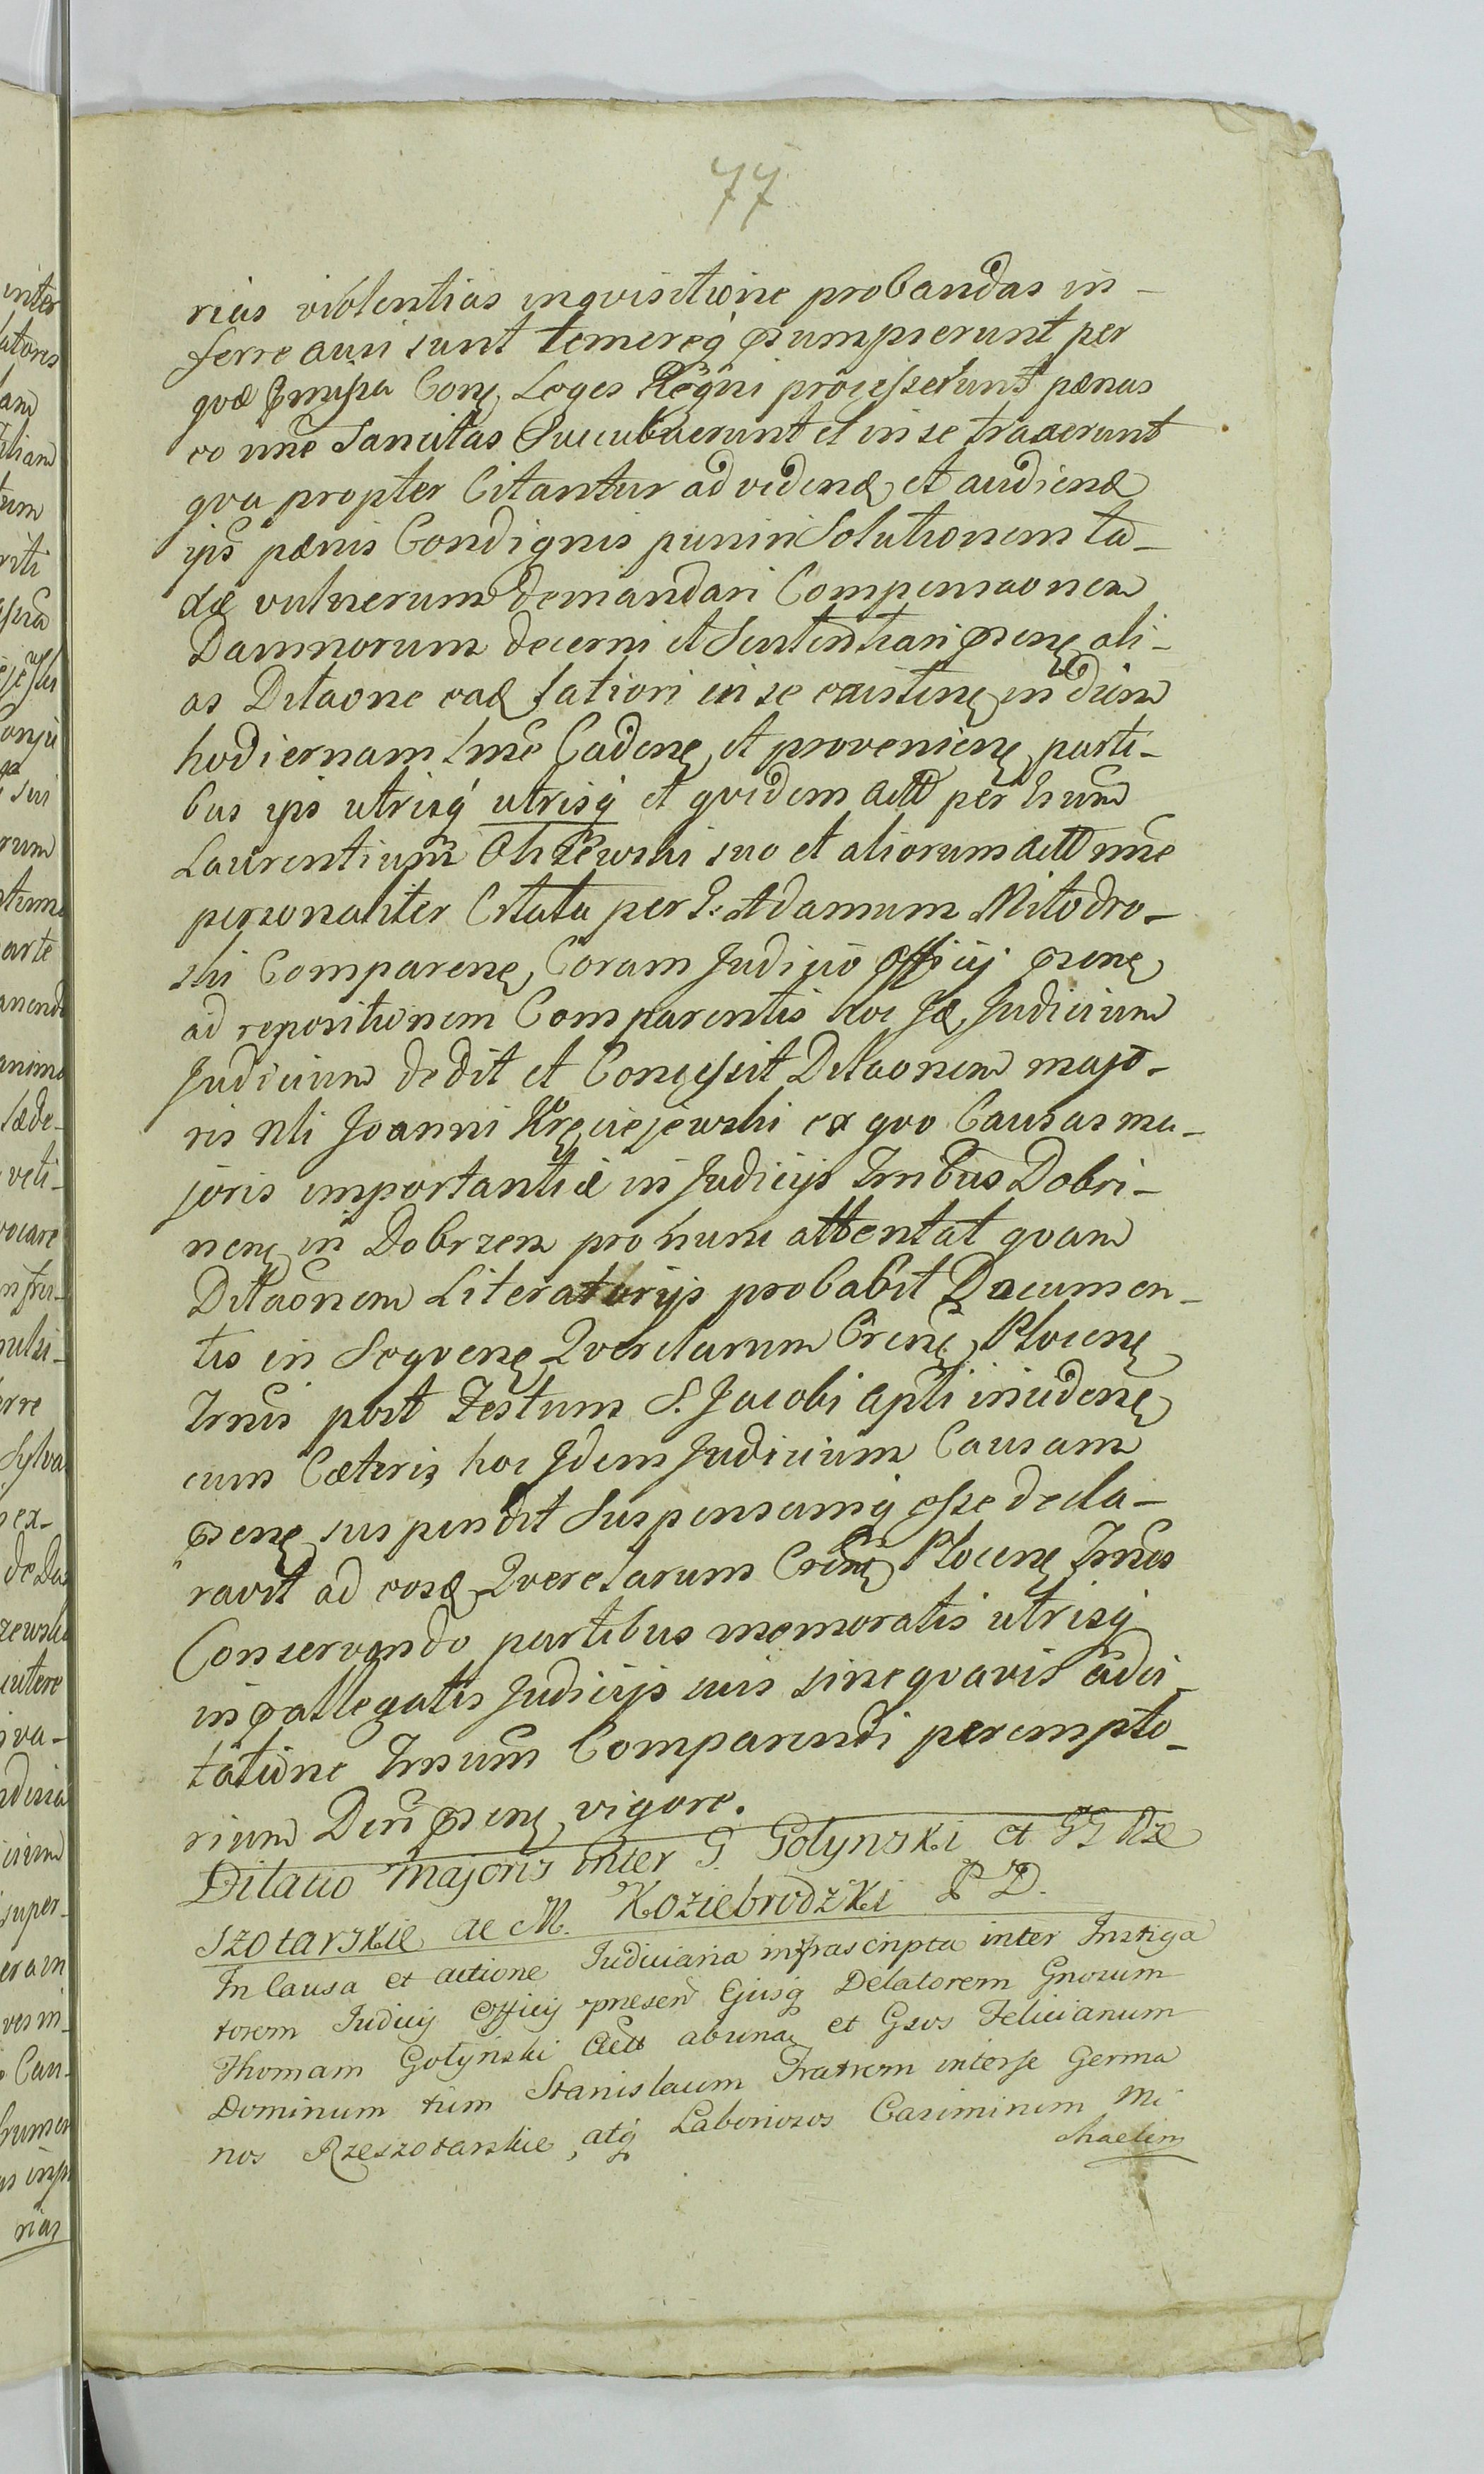 77
rias violentias inqvisitione probandas in-
ferre ausi sunt temereq́ prsumpserunt per
qvæ præmissa Conᶒ Leges Regni processerunt pænas
eo nne Sancitas Succubuerunt et in se traxerunt
qva propter Citantur ad videnᶁ et audienᶁ
ipś pænis Condignis puniri Solutionem ta-
xæ vulnerum demandari Compensaonem
Damnorum decerni et Sententiari prsenᶒ ali-
as Dilaone eaᶁ latiori in se existenᶒ in diem
hodiernam lme Cadenᶒ et provenienᶒ parti-
bus ipś utrisq́ utrisq́ et qvidem actt per Gsum
Laurentium Olszewski suo et aliorum actt nne
personaliter Citata per G: Adamum Mitodro-
ski Comparenᶒ Coram Judicio Officij prsenᶒ
ad repositionem Comparentis hoc Jᶁ Judicium
Judicium dedit et Concessit Dilaonem majo-
ris Nli Joanni Kręciejewski ex qvo Causas ma-
joris importantiæ in Judicijs Trnibus Dobri-
nenᶒ in Dobrzen pro nunc attentat qvam
Dilaonem Literatorijs probabit Documen-
tis in Seqvenᶒ Qverelarum Crenᶒ Plocenᶒ
Trnis post Festum S. Jacobi Apli incidenᶒ
cum Cæteris hoc Idem Judicium Causam
prsenᶒ suspendit Suspensamq́ esse decla-
ravit ad eosᶁ Qverelarum Crenᶒ Plocenᶒ Trnos
Conservando partibus memoratis utrisq́
in præallegatis Judicijs suis sine qvavis adci-
tatione Trnum Comparendi perempto-
rium Dcti prsenᶒ vigore.
Dilatio majoris inter G. Golynski et GG Rze
szotarskie ac M. Koziebrodzki P D.
In Causa et actione Judiciaria infrascripta inter Instiga
torem Judicij Officij presenᶁ Ejusq́ Delatorem Gnosum
Thomam Gołyński Actt abunaᶒ et Gsos Felicianum
Dominum tum Stanislaum Fratrem interse Germa
nos Rzeszotarskie, atq́ Laboriosos Casimirum Mi
chaelem